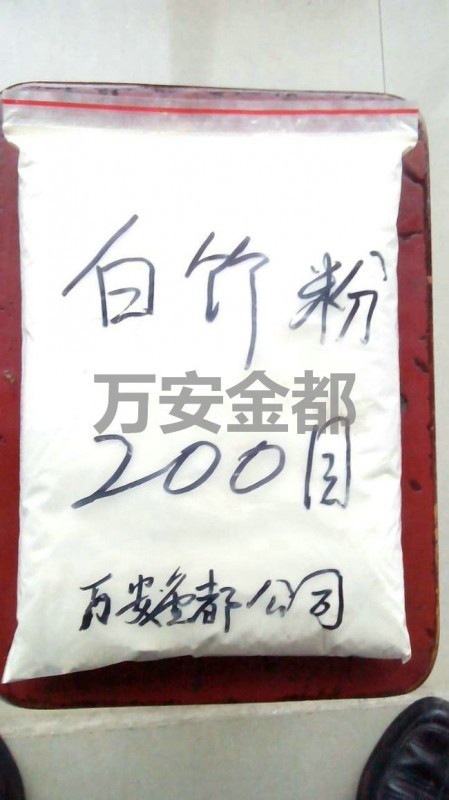 白竹粉
万安金都
200目
万安金都公司